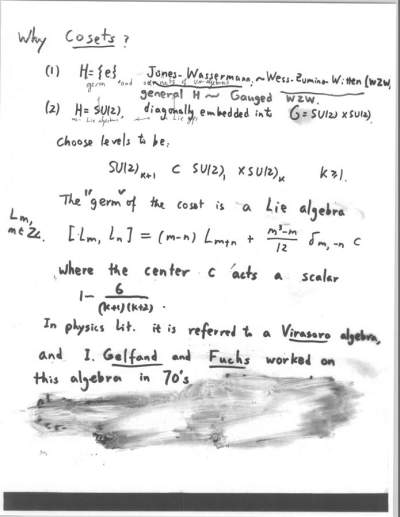 Why Cosets?
(1) H={e}, Jones-Wassermann, ~Wess-Zumino-Witten (WZW)
germ and
general H ~ Gauged WZW.
(2) H= SU(2), diagonally embedded into G=SU(2)×SU(2)
Choose levels to be,
SU(2)k+1 ⊂ SU(2)1 × SU(2)k k≥1.
The "germ" of the coset is a Lie algebra
Lm, m∈Z. [Lm, Ln] = (m-n) Lm+n + m³-m/12 δm,-n C
where the center C acts a scalar
1- 6/(k+1)(k+2) .
In physics Lit. it is referred to a Virasoro algebra,
and I. Gelfand and Fuchs worked on
this algebra in 70's